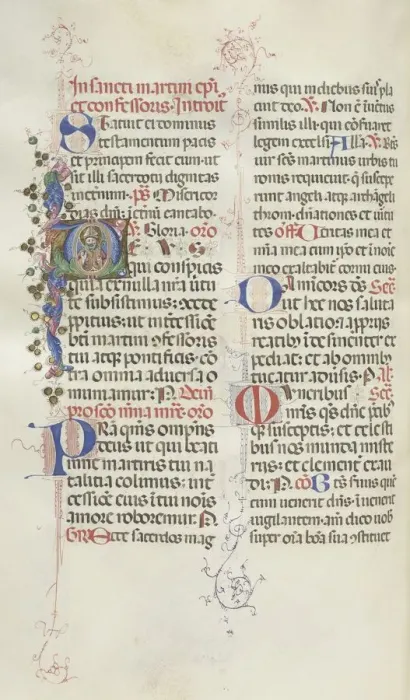 In sancti martini epi
et confessoris. Introit
Statuit ei dominus
testamentum pacis
et principem fecit eum ut
sit illi sacerdotij dignitas
in eternum. ps Misericor
dias dni i eternu cantabo.
V. Gloria. oro
Deus
qui conspicis
quia ex nulla nra virtu
te subsistimus: cocede
ppitius: ut intercessioe
bti martini cofessoris
tui atq pontificis co
tra omnia adversa
muniamur: P. Dein
oro
Presta quesumus omnips
deus ut qui beati
martiris tui na
talitia colimus: int
cessioe eius i tui nois
amore roboremur. P.
Ecce sacerdos mag
nus qui in diebus suis pla
cuit deo. V. Non e inuetus
similis illi. qui coseruaret
legem excelsi. Alla. V. Bea
tus uir scus martinus urbis tu
ronis requieuit. que suscepe
runt angeli atq archangeli
throni. dnationes et uirtu
tes off. Ueritas mea et
mia mea cum ipo et i noie
meo exaltabit cornu eius.
Da misericors ds Sec
ut hec nos saluta
ris oblatio a pprijs
reatib indesinenter ex
pediat: et ab omnib
tueatur aduersis. P. Al.
Muneribus Sec
nris qs dne pcib
q susceptis: et celesti
bus nos munda miste
rijs: et clementer exau
di: P. co Beatus seruus que
cum uenerit dns. inuenerit
uigilantem. am dico uob
super oia bona sua ostituet